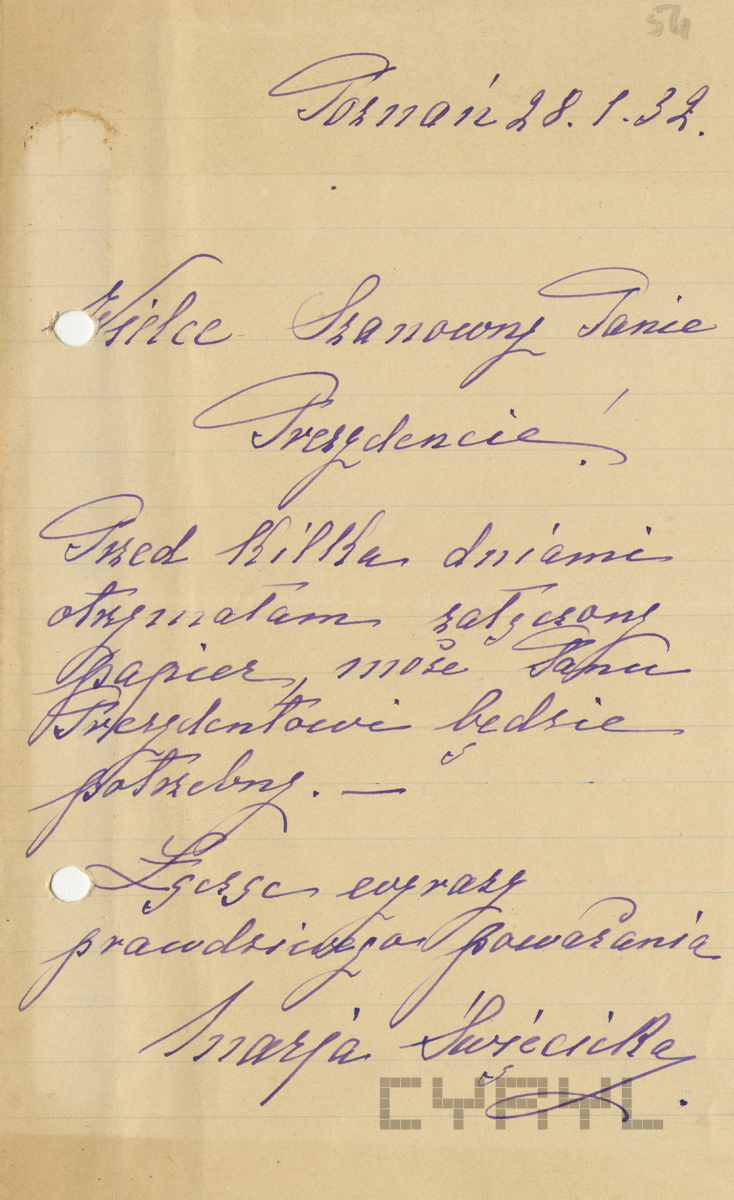 54
Poznań 28. 1. 32.
Wielce Szanowny Panie
Prezydencie!
Przed kilku dniami
otrzymałam załączony
papier, może Panu
Prezydentowi będzie
potrzebny. —
Łącząc wyrazy
prawdziwego poważania
Marja Święcicka.
CYRYL